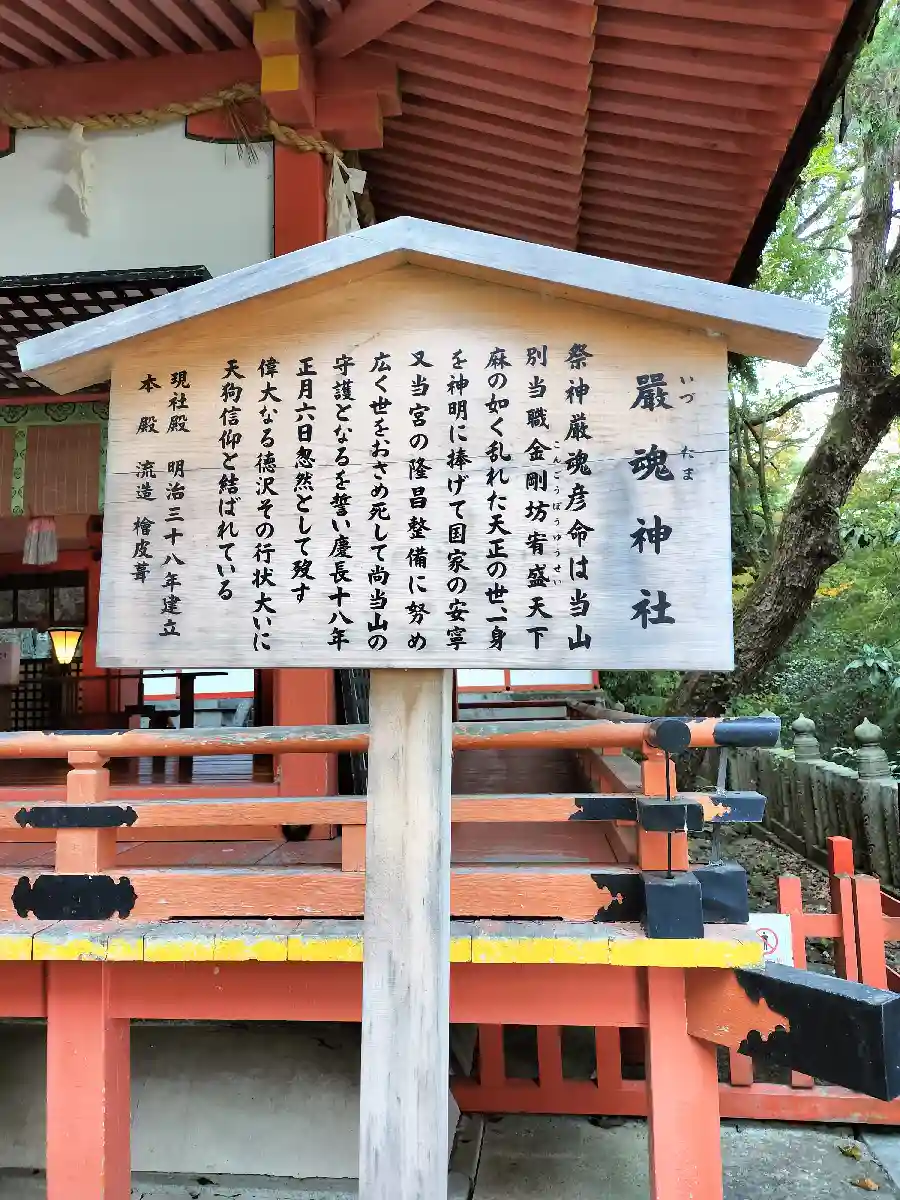 嚴魂神社
いづたま
祭神厳魂彦命は当山
別当職金剛坊宥盛天下
こんごうぼうゆうせい
麻の如く乱れた天正の世、一身
を神明に捧げて国家の安寧
又当宮の隆昌整備に努め
広く世をおさめ死して尚当山の
守護となるを誓い慶長十八年
正月六日忽然として歿す
偉大なる徳沢その行状大いに
天狗信仰と結ばれている
現社殿 明治三十八年建立
本殿 流造 檜皮葺